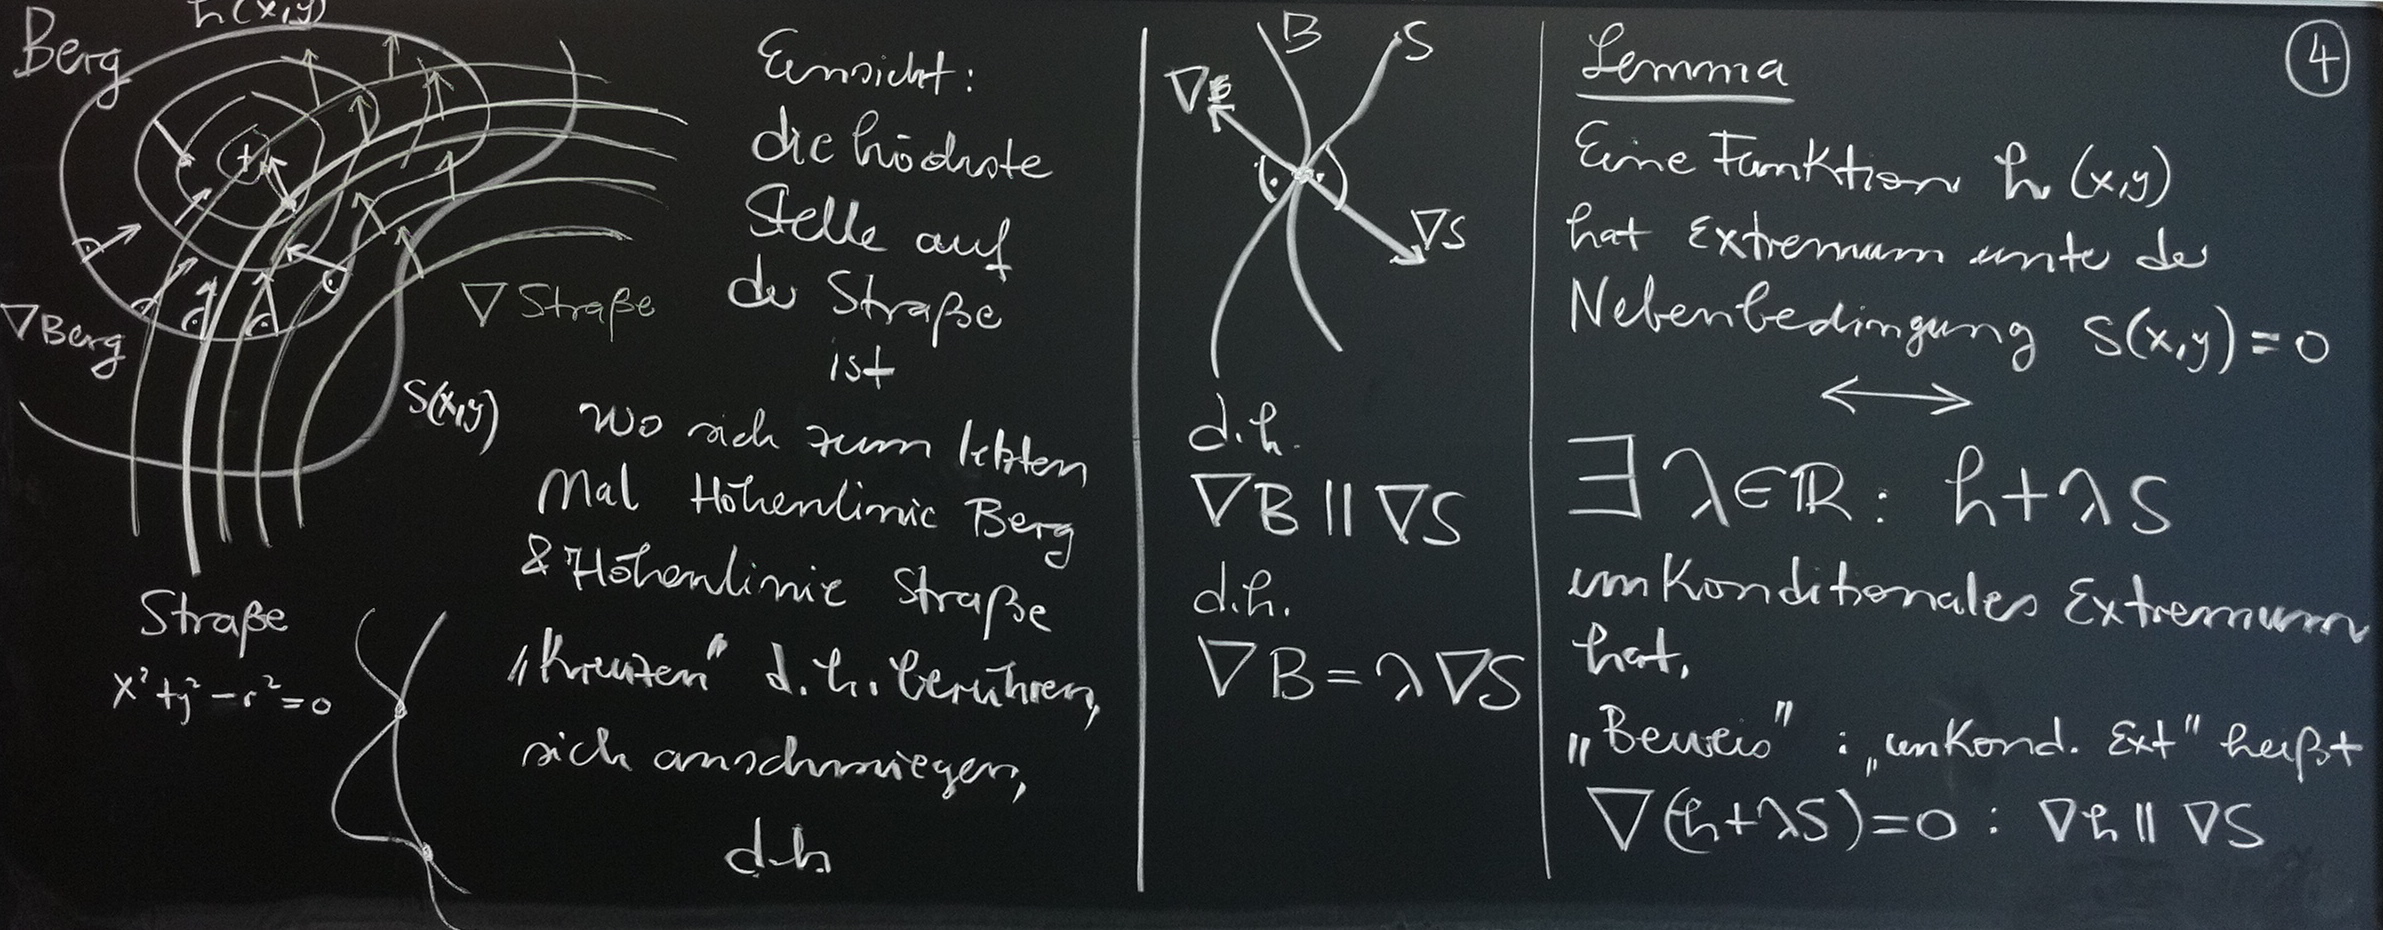 h(x,y)
Berg
∇Berg
∇ Straße
S(x,y)
Straße
x²+y²-r²=0
Einsicht:
die höchste
Stelle auf
der Straße
ist
wo sich zum letzten
Mal Höhenlinie Berg
& Höhenlinie Straße
„Kreuzen" d.h. berühren,
sich anschmiegen,
d.h
B
S
∇B
∇S
d.h.
∇B || ∇S
d.h.
∇B = λ∇S
④
Lemma
Eine Funktion h(x,y)
hat Extremum unter der
Nebenbedingung S(x,y)=0
↔
∃ λ∈ℝ: h+λS
unkonditionales Extremum
hat,
„Beweis" : „unKond. Ext" heißt
∇(h+λS)=0 : ∇h || ∇S